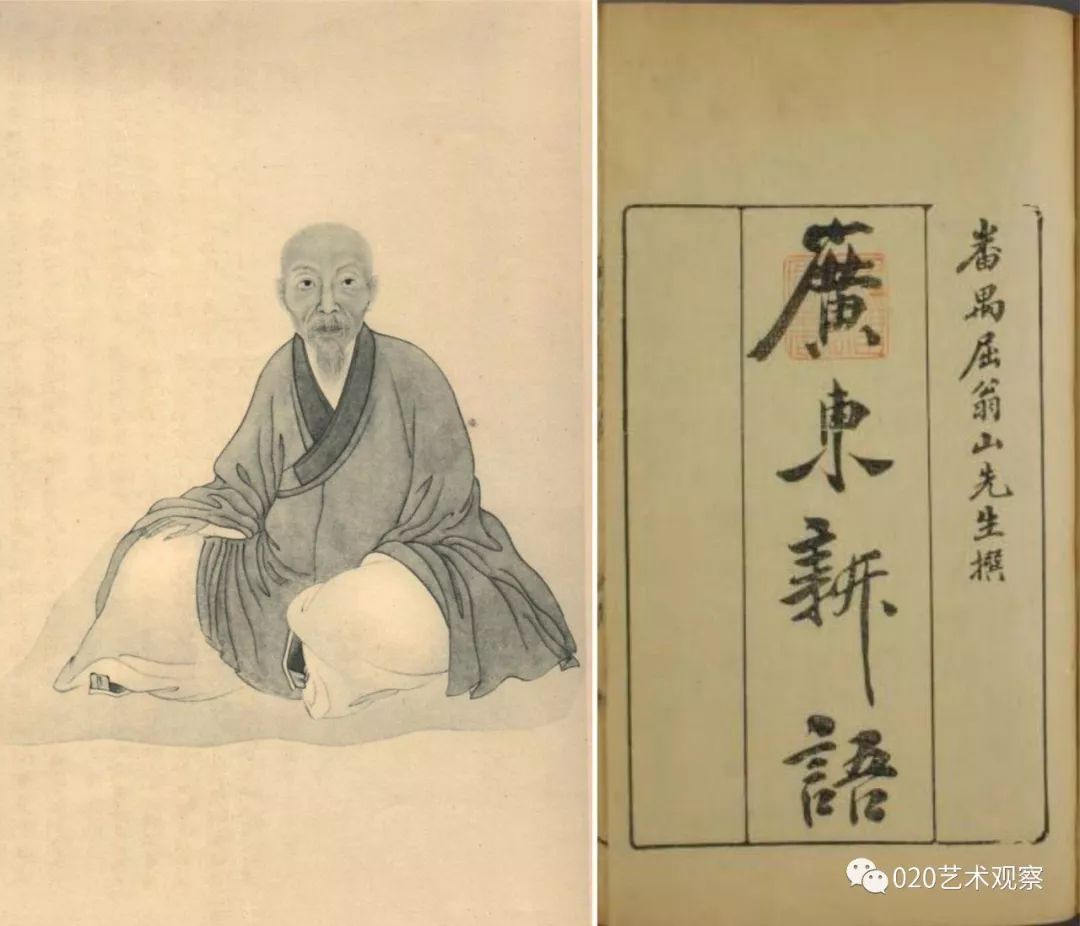 番禺屈翁山先生撰
廣東新語
020艺术观察